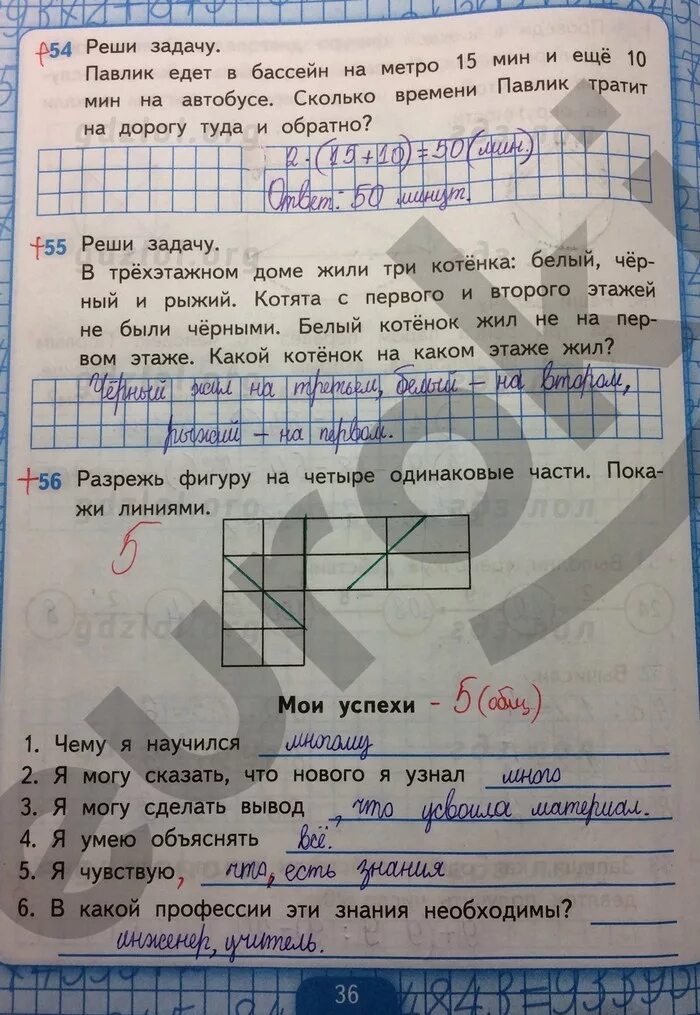 +54 Реши задачу.
Павлик едет в бассейн на метро 15 мин и ещё 10
мин на автобусе. Сколько времени Павлик тратит
на дорогу туда и обратно?
2·(15+10)=50(мин.)
Ответ: 50 минут.
+55 Реши задачу.
В трёхэтажном доме жили три котёнка: белый, чёр-
ный и рыжий. Котята с первого и второго этажей
не были чёрными. Белый котёнок жил не на пер-
вом этаже. Какой котёнок на каком этаже жил?
Чёрный жил на третьем, белый – на втором,
рыжий – на первом.
+56 Разрежь фигуру на четыре одинаковые части. Пока-
жи линиями.
5
Мои успехи - 5(общ)
1. Чему я научился многому
2. Я могу сказать, что нового я узнал много
3. Я могу сделать вывод, что усвоила материал.
4. Я умею объяснять всё.
5. Я чувствую, что, есть знания
6. В какой профессии эти знания необходимы?
инженер, учитель.
36
gdzlol.org
euroki